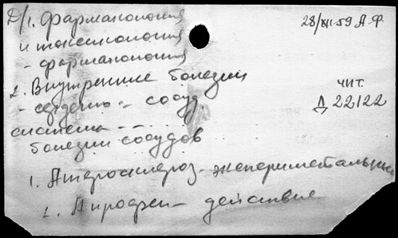 Д/1. Фармакология 28/XI-59 А.Ф.
и токсикология
- фармакология
2. Внутренние болезни
- сердечно - сосуд. чит.
система - Д 22122
болезни сосудов
1. Атеросклероз - экспериментальный
2. Апрофен - действие